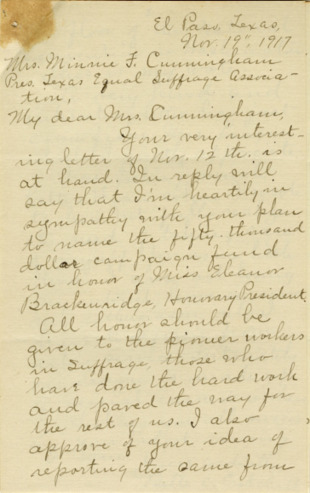 El Paso, Texas,
Nov. 19", 1917
Mrs. Minnie F. Cunningham
Pres. Texas Equal Suffrage Associa-
tion,
My dear Mrs. Cunningham,
Your very interest-
ing letter of Nov. 12 th. is
at hand. In reply will
say that I'm heartily in
sympathy with your plan
to name the fifty-thousand
dollar campaign fund
in honor of Miss Eleanor
Brackenridge, Honorary President.
All honor should be
given to the pioneer workers
in Suffrage, those who
have done the hard work
and paved the way for
the rest of us. I also
approve of your idea of
reporting the same from